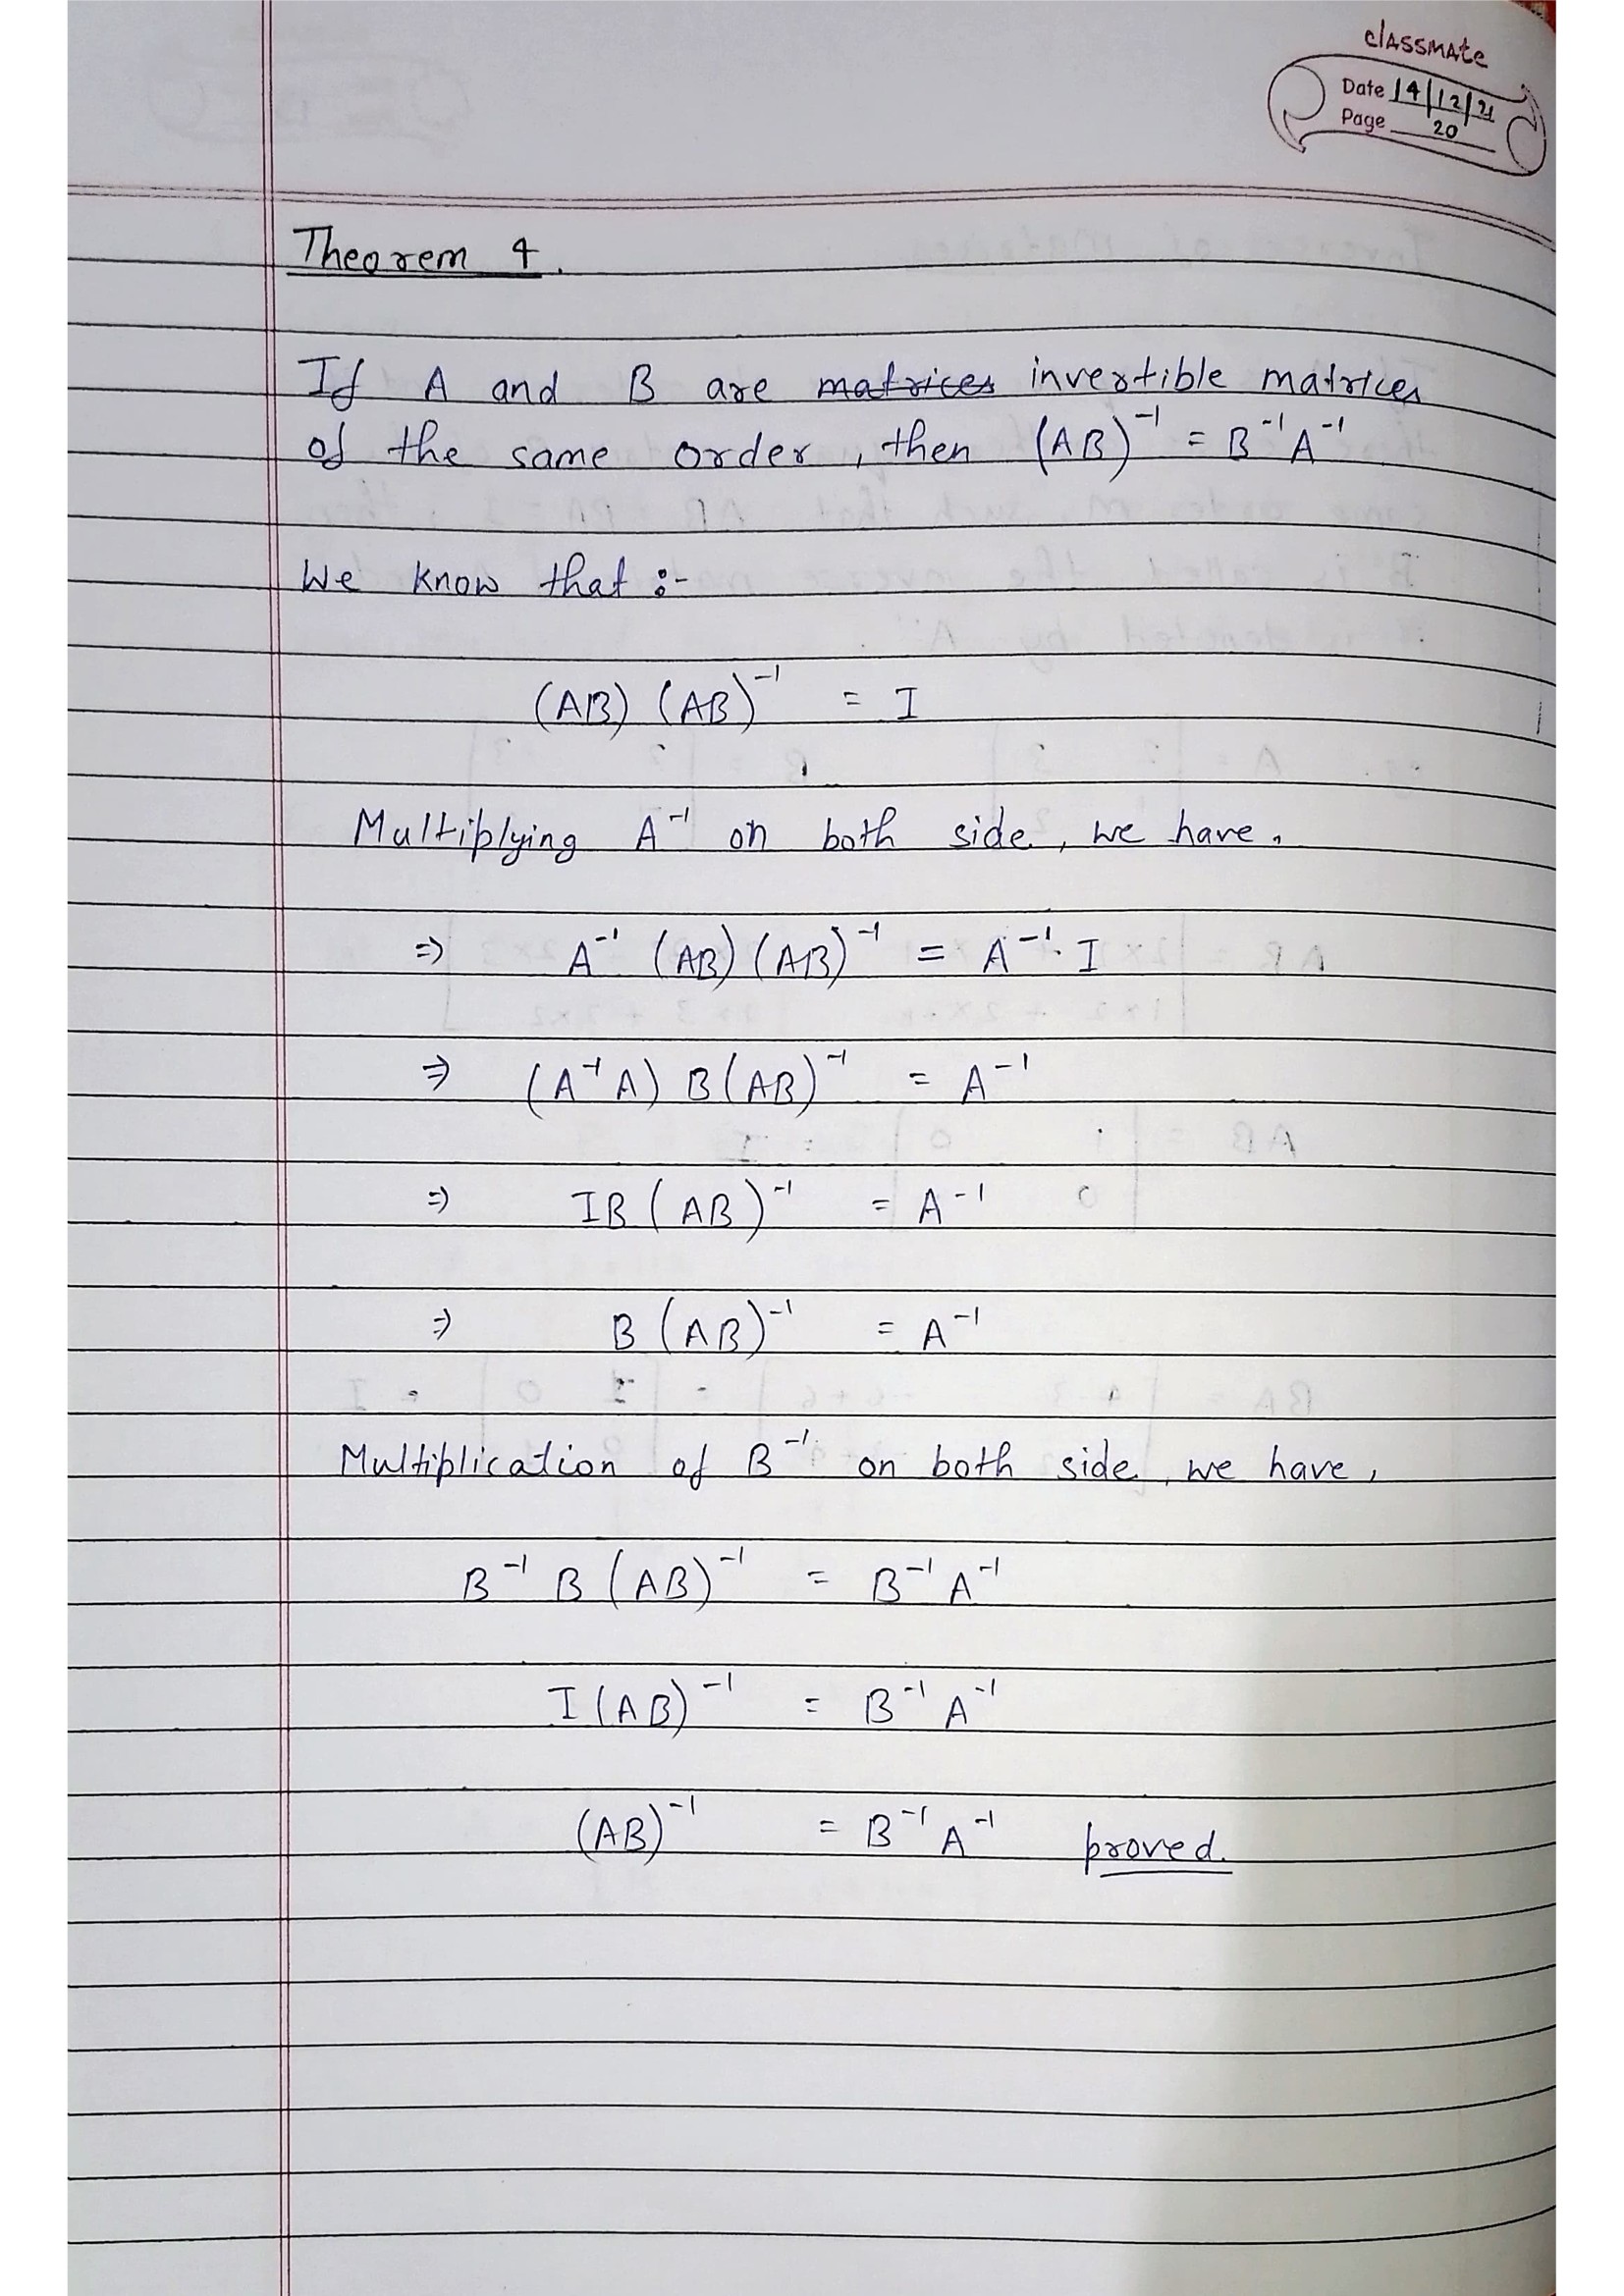 classmate
Date 14/12/21
Page 20
Theorem 4.
If A and B are matrices invertible matrices
of the same order, then (AB)⁻¹ = B⁻¹A⁻¹
We know that :-
(AB) (AB)⁻¹ = I
Multiplying A⁻¹ on both side, we have,
⇒ A⁻¹ (AB) (AB)⁻¹ = A⁻¹. I
⇒ (A⁻¹A) B(AB)⁻¹ = A⁻¹
⇒ IB (AB)⁻¹ = A⁻¹
⇒ B (AB)⁻¹ = A⁻¹
Multiplication of B⁻¹ on both side, we have,
B⁻¹ B (AB)⁻¹ = B⁻¹ A⁻¹
I (AB)⁻¹ = B⁻¹ A⁻¹
(AB)⁻¹ = B⁻¹ A⁻¹ proved.